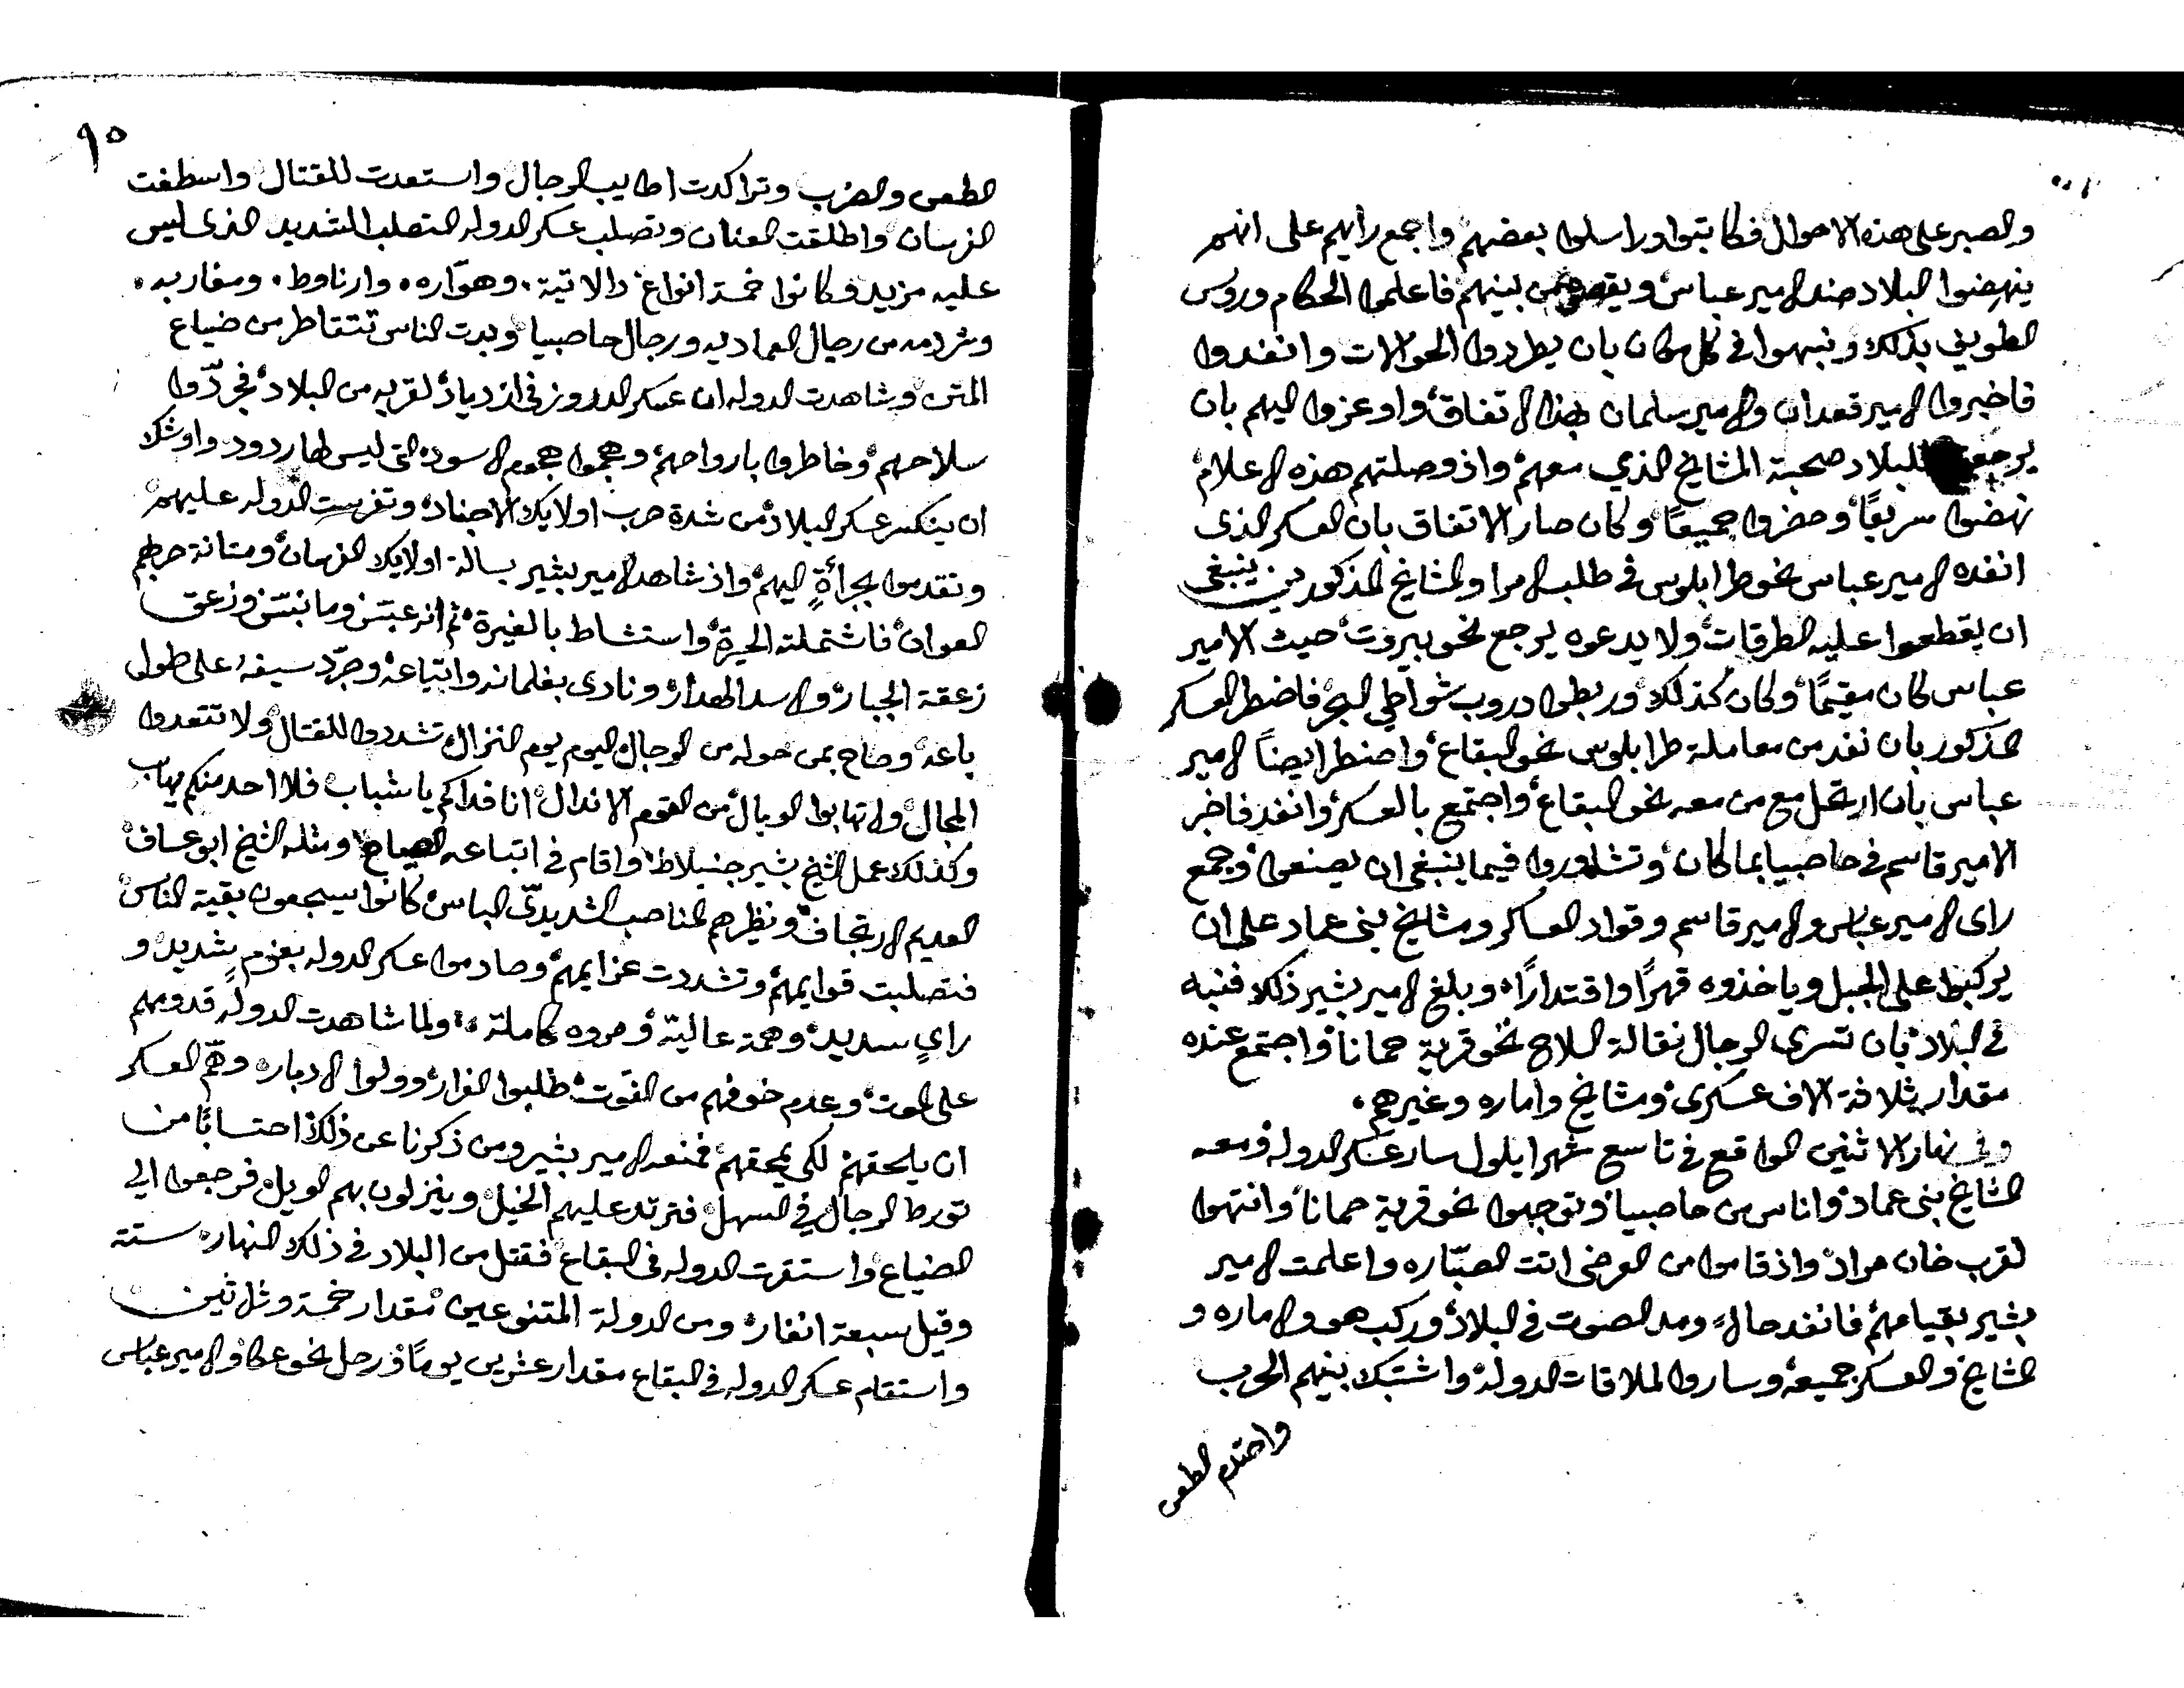 والصبر على هذه الاحوال فكاتبوا وراسلوا بعضهم واجمع رايهم على انهم
ينهضوا البلاد ضد الامير عباس بينهم فاعلموا الحكام وروس
بذلك ونبهوا في كل مكان بان يطردوا الحوالات وانفدوا
فاخبروا الامير قعدان والامير سلمان بهذا الاتفاق واوعزوا اليهم بان
للبلاد صحبة المشايخ الذي معهم واذ وصلتهم هذه الاعلام
نهضوا سريعًا وحضروا جميعًا وكان صار الاتفاق بان العسكر الذى
انفده الامير عباس نحو طرابلوس في طلب الامرا والمشايخ المذكورين ينبغى
ان يقطعوا عليه الطرقات ولا يدعوه يرجع نحو بيروت حيث الامير
عباس كان مقيمًا وكان كذلك وربطوا دروب شواطي البحر فاضطر العسكر
المذكور بان نفد من معاملة طرابلوس نحو البقاع واضطر ايضًا الامير
عباس بان ارتحل مع من معه نحو البقاع واجتمع بالعسكر وانفد فاخبر
الامير قاسم في حاصبيا بما كان وتشاوروا فيما ينبغى ان يصنعوا وجمع
راى الامير عباس والامير قاسم وقواد العساكر ومشايخ بنى عماد على ان
يركبوا على الجبل وياخذوه قهرًا واقتدارًا وبلغ الامير بشير ذلك فنبه
في البلاد بان تسرى الرجال نقالة السلاح نحو قرية حمانا واجتمع عنده
مقدار ثلاثة الاف عسكرى ومشايخ واماره وغيرهم.
وفى نهار الاثنين الواقع في تاسع شهر ايلول سار عسكر الدوله ومعه
المشايخ بنى عماد واناس من حاصبيا وتوجهوا نحو قرية حمانا وانتهوا
لقرب خان مراد واذ قاموا من العرضى اتت الصبّاره واعلمت الامير
بشير بقيامهم فانفد حالا ومد الصوت في البلاد وركب هو والاماره و
المشايخ والعسكر جميعه وساروا لملاقات الدوله واشتبك بينهم الحرب
واحتدم الطعن
٩٥
الطعن والضرب وتراكدت اطاليب الرجال واستعدت للقتال واسطفت
الفرسان واطلقت العنان وتصلب عسكر الدوله التصلب الشديد الذى ليس
عليه مزيد وكانوا خمسة انواع دالاتية. وهوّاره. وارناوط. ومغاربه.
وشردمه من رجال العماديه ورجال حاصبيا وبدت الناس تتقاطر من ضياع
المتن وشاهدت الدوله ان عسكر الدروز في ازدياد لقربه من البلاد فجردّوا
سلاحهم وخاطروا بارواحهم وهجموا هجوم الاسوده التى ليس لها ردود واوشك
ان ينكسر عسكر البلاد من شدة حرب اولايك الاجناد وتفرست الدوله عليهم
وتقدموا بجرأةٍ اليهم واذ شاهد الامير بشير بسالة اولايك الفرسان ومتانة حربهم
العوان فاشتملته الحيرة واستشاط بالغيرة ثم انه عبّس وما نبّس وزعق
زعقة الجبار والاسد الهدار ونادى بغلمانه واتباعه وجرّد سيفه على طول
باعه وصاح بمن حوله من الرجال اليوم يوم النزال تشددوا للقتال ولا تتعدوا
المجال ولا تهابوا الوبال من القوم الاندال انا فداكم يا شباب فلا احد منكم يهاب
وكذلك عمل الشيخ بشير جنبلاط واقام في اتباعه الصياح ومثله الشيخ ابو عساف
العديم الارتجاف ونظيرهم المناصب الشديدىّ الباس كانوا يسجعون بقية الناس
فتصلبت قوايمهم وتشددت عزايمهم وصادموا عسكر الدوله بعزمٍ شديد و
رايٍ سديد وهمة عالية ومروه كاملة. ولما شاهدت الدوله قدومهم
على الموت وعدم خوفهم من الفوت طلبوا الفرار وولوا الادبار وهمّ العسكر
ان يلحقهم لكى يمحقهم فمنعه الامير بشير ومن ذكرنا عن ذلك احتسابًا من
تورط الرجال في السهل فترتد عليهم الخيل وينزلون بهم الويل فرجعوا الي
الضياع واستقرت الدوله فى البقاع فقتل من البلاد في ذلك النهار ستة
وقيل سبعة انفار ومن الدولة المتنوعين مقدار خمسة وثلاثين
واستقام عسكر الدوله في البقاع مقدار عشرين يومًا ورحل نحو عكا والامير عباس